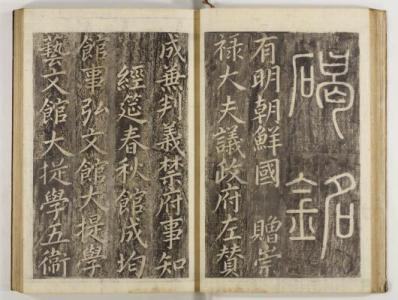 碣銘
有明朝鮮國 贈崇
禄大夫議政府左賛
成兼判義禁府事知
經筵春秋館成均
館事弘文館大提學
藝文館大提學五衛